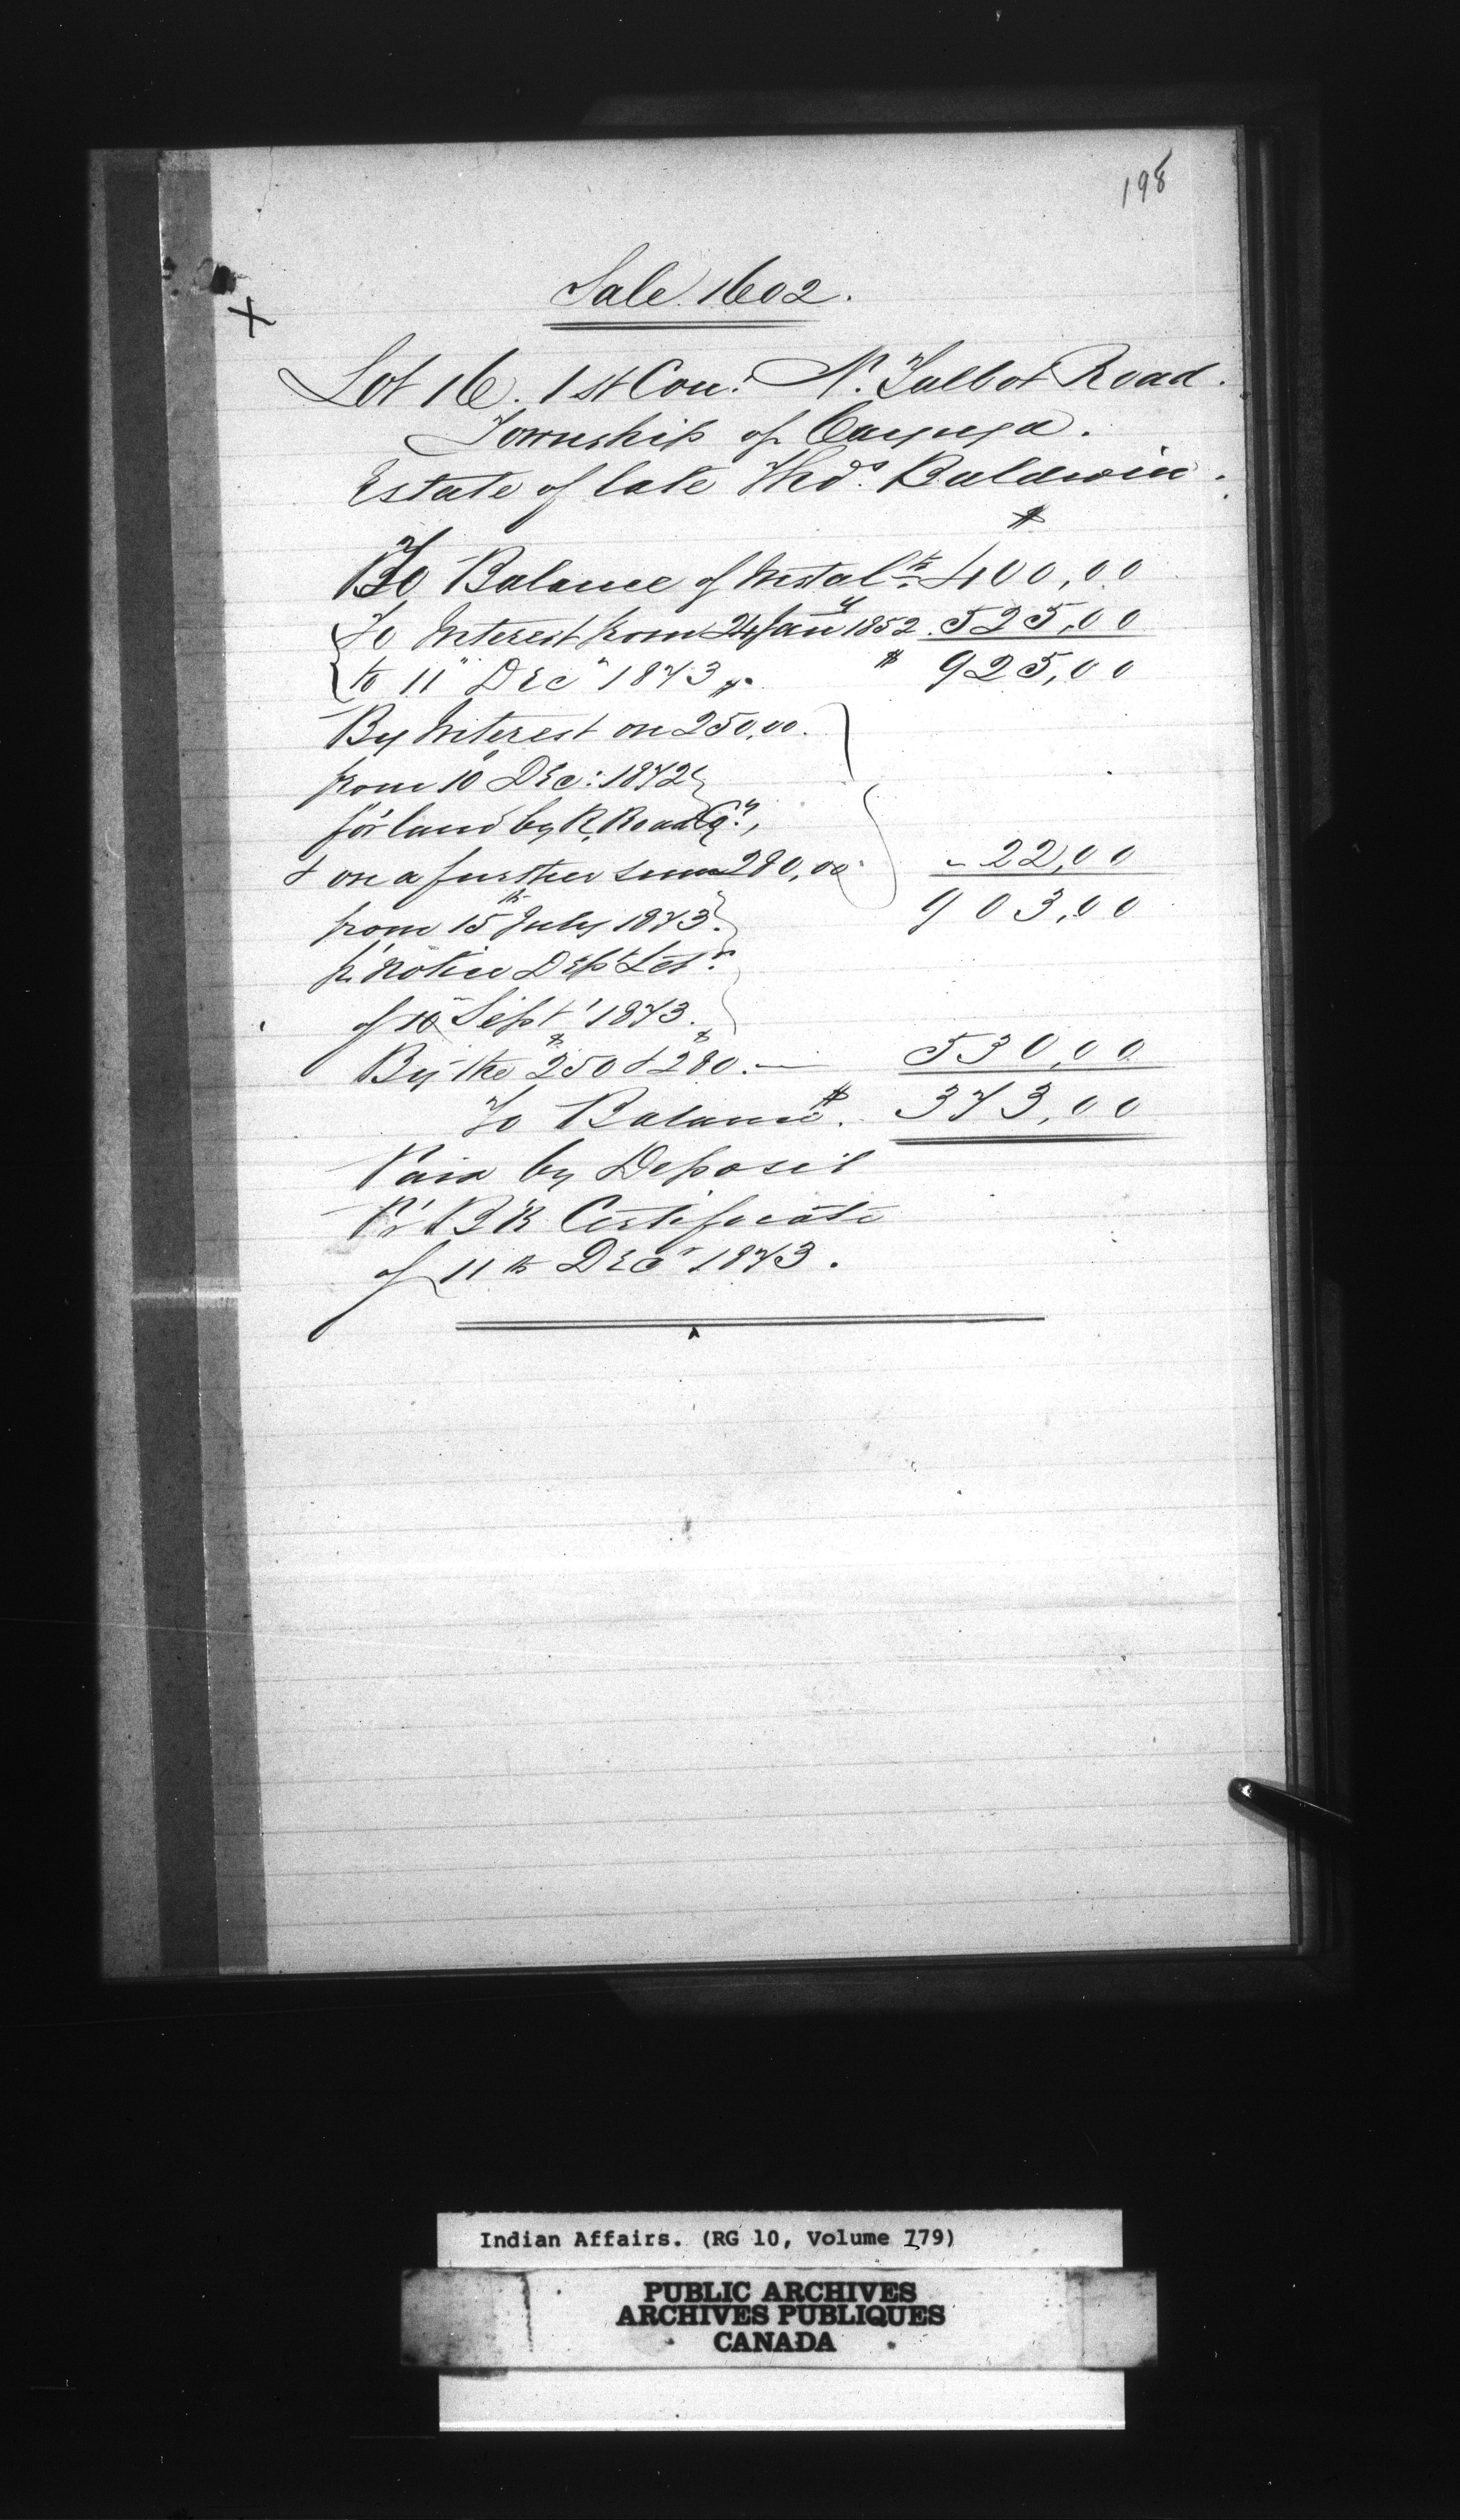 198
Sale 1602.
X
Lot 16. 1st Con: N. Talbot Road.
Township of Cayuga.
Estate of late Thos. Baldwin.
$
To Balance of Instalts 400,00
To Interest from 24 Jany 1852. 525,00
to 11" Dec" 1873 $ 925,00
By Interest on 250,00.
from 10" Dec: 1872
for land by R. Road Coy.,
& on a further sum 280,00 - 22,00
from 15th July 1873. 903,00
pr. notice Dept Letr.
of 10" Sept' 1873.
By the $250 & $280. — 530,00
To Balance. $ 373,00
Paid by Deposit
Pr BK Certificate
of 11th Decr 1873.
Indian Affairs. (RG 10, Volume 779)
PUBLIC ARCHIVES
ARCHIVES PUBLIQUES
CANADA